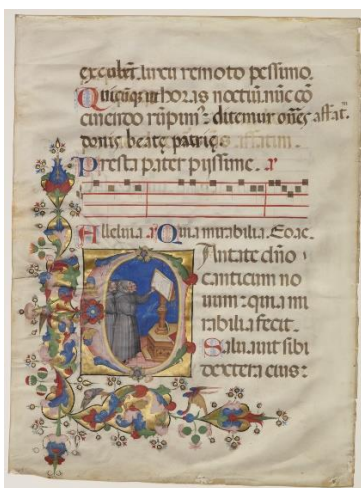 excubet. lucu remoto pessimo.
Quicūq ut horas noctiū. nūc cō
cinendo rūpim⁹: ditemur oñes affat̄.
donis beate patrie affatim.
Presta pater pijssime. ℟
Alleluia. ℟ Quia mirabilia. Eo ac.
Cantate dño
canticum no
uum: quia mi
rabilia fecit.
Saluauit sibi
dextera eius: